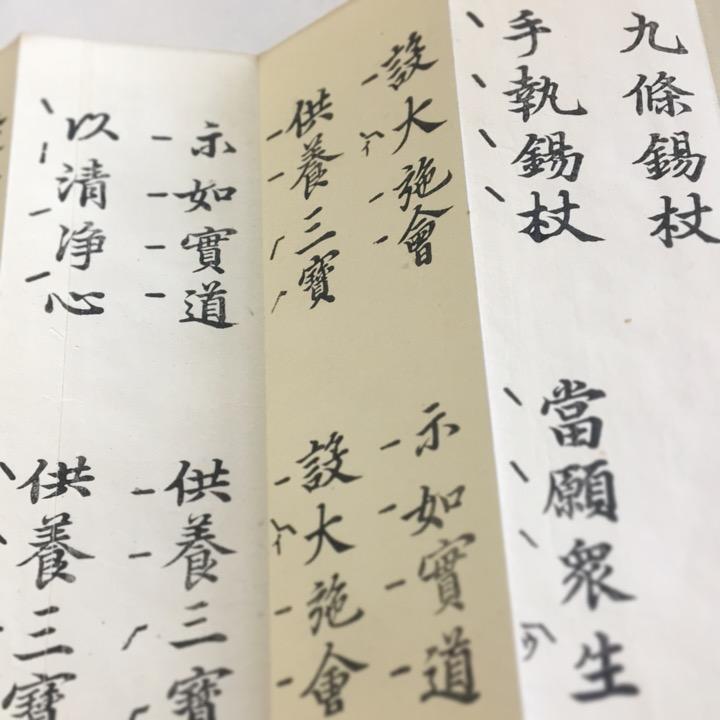 九條錫杖
手執錫杖 當願衆生
設大施會 示如實道
供養三寶 設大施會
示如實道 供養三寶
以清浄心 供養三寶